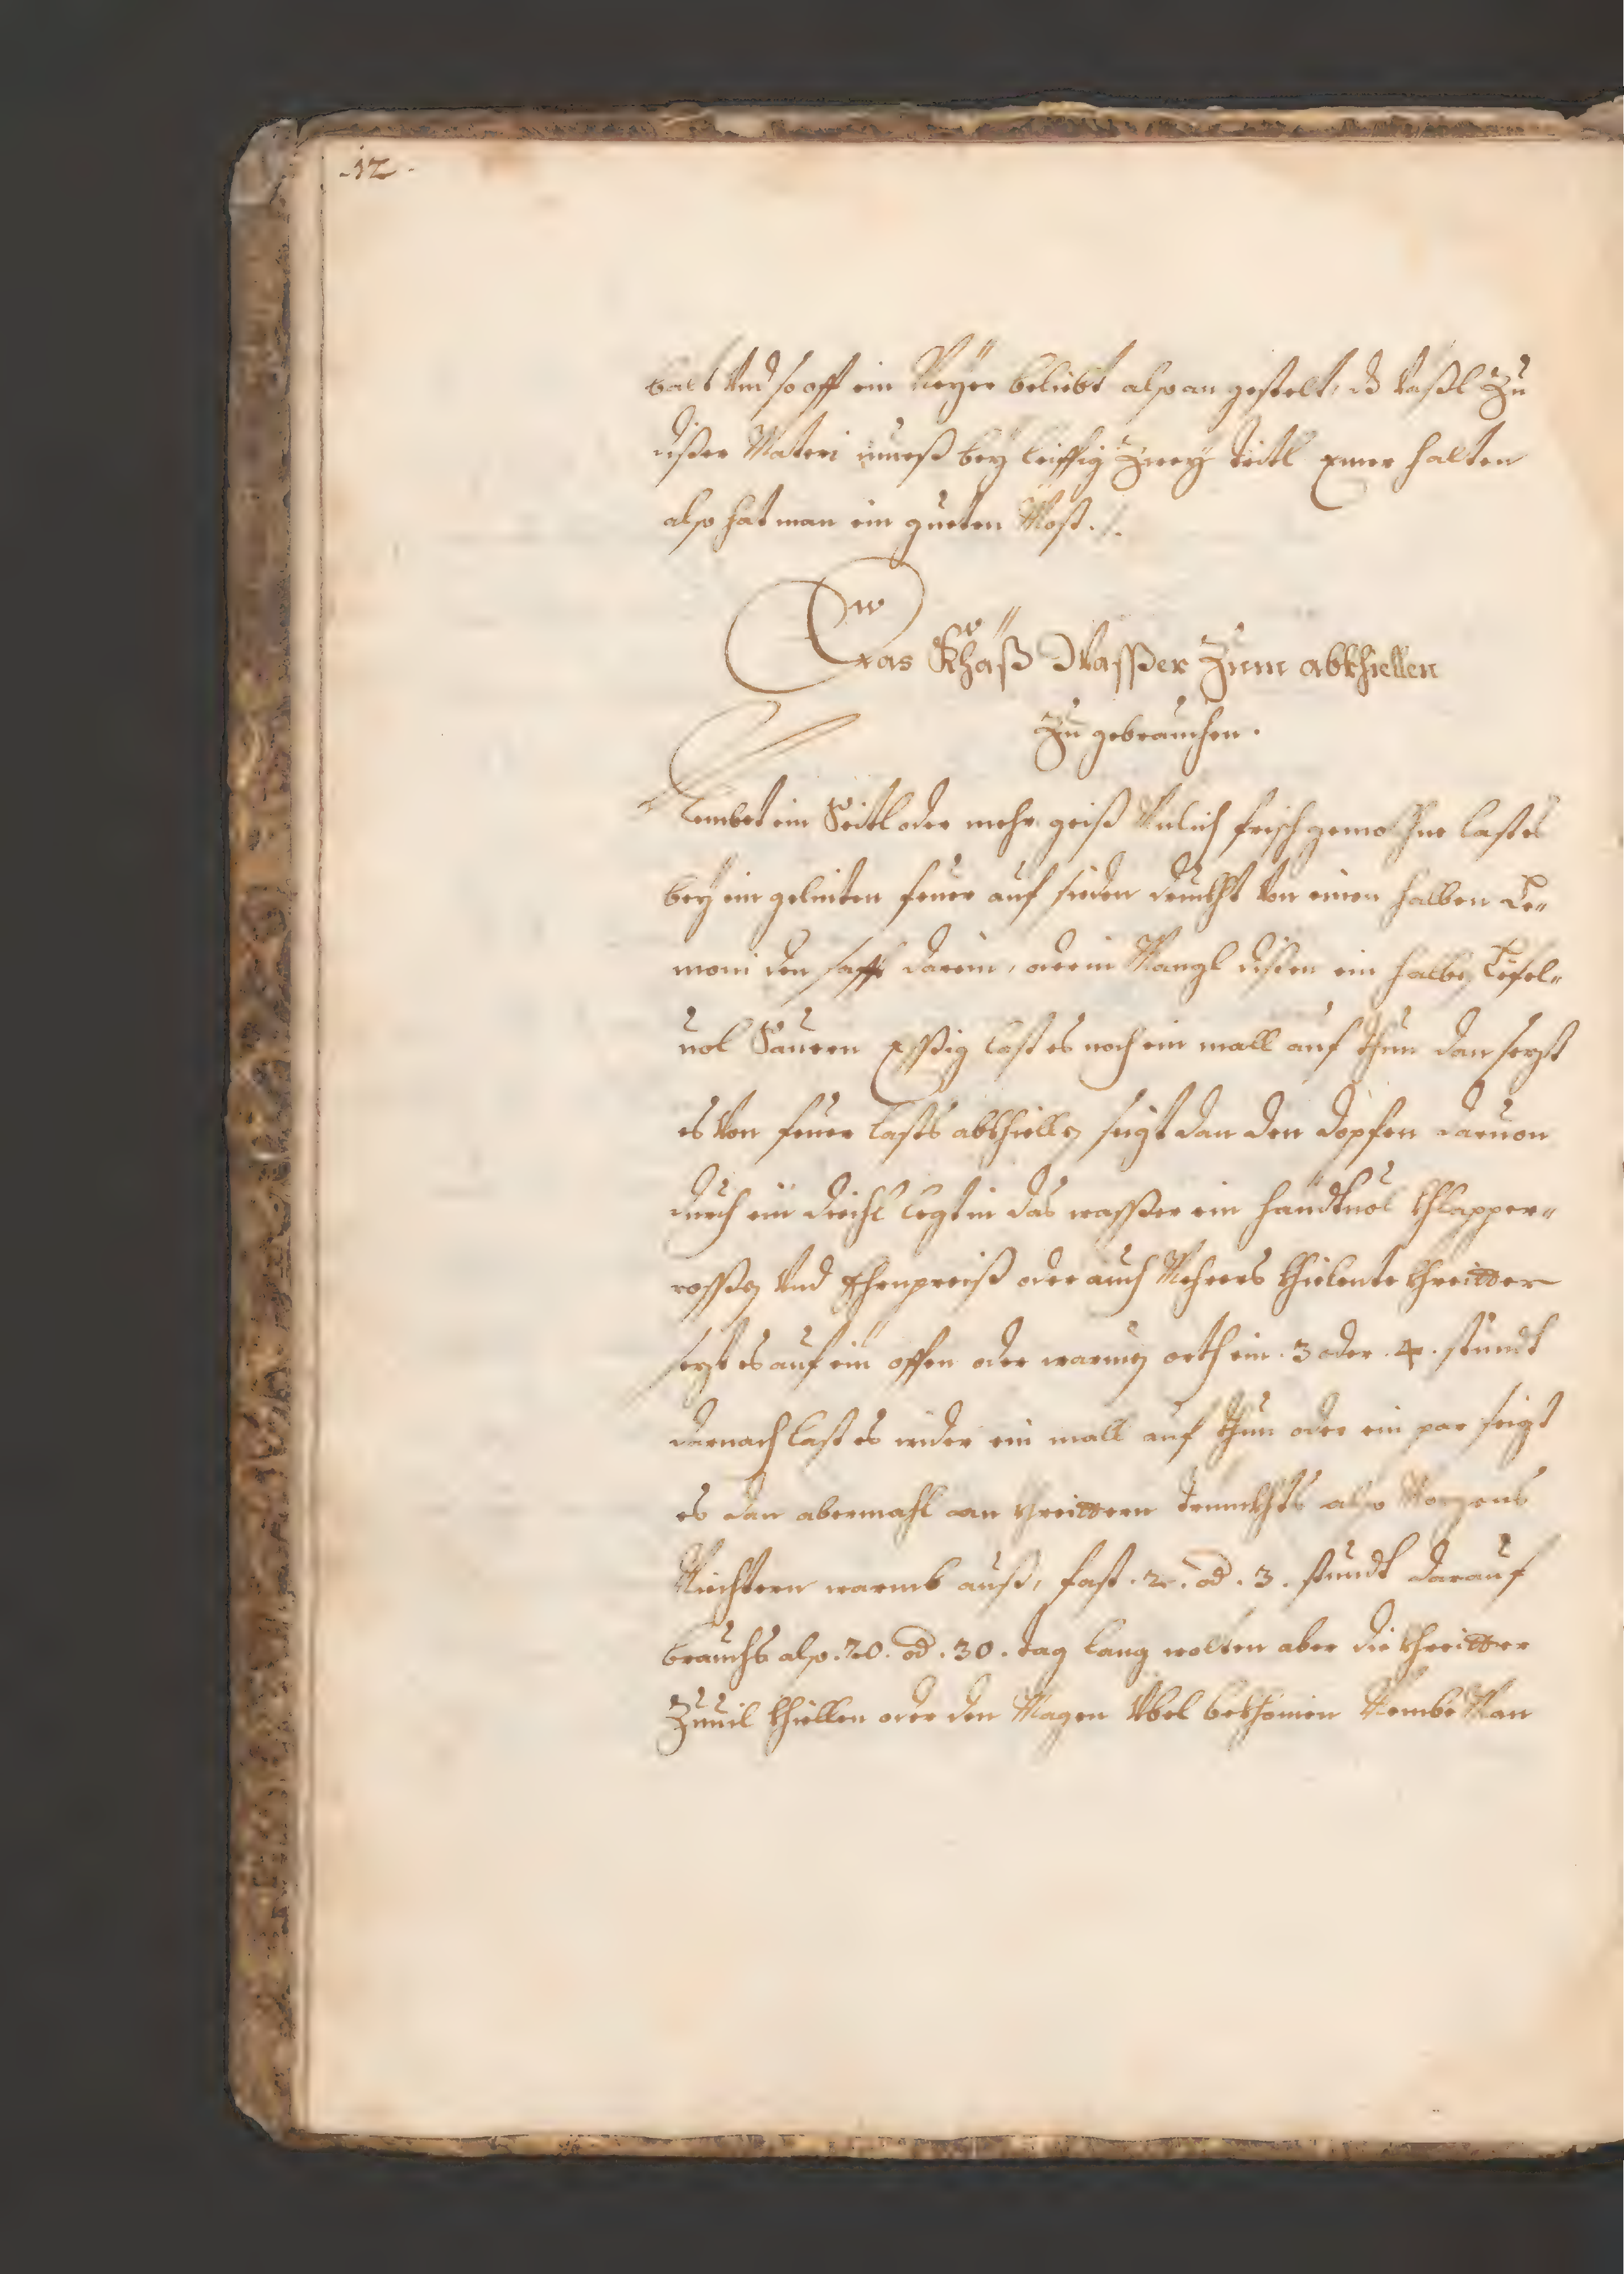 .12.
balt Vnd so offt ein Neyer beliebt also an gestelt, ds Vassl Zu
disser Materi muess bey leiffig Zwey Dritl Emer halten
also hat man ein gueten Most ./.
Das Khäß Wasser Zum abkhiellen
Zu gebrauchen.
Nembet ein Seitl oder mehr geiß Milich frisch gemolchne last es
bey ein gelinten feuer auf sieden druckht Von einen halben Le„
moni den safft darein, oder in Mangl dissen ein halben Lefel„
uol Sauren Essig last es noch ein mall auf thun dan sezt
es Von feuer lasts abkhiellen seigt dan den dopfen daruon
durch ein diechl legt in das wasser ein handtuol Khlapper„
rossen Vnd Ehrnpreiß oder auch Mehrers khielente khreitter
sezt es auf ein offen oder warmen orth ein .3 oder .4. stundt
darnach last es wider ein mall auf thun oder ein par seigt
es dan abermahl von khreittern trinckhts also Morgens
Niechtern warmb auß, fast .2. od .3. stundt darauf
brauchs also .20. od .30. tag lang wolten aber die khreitter
Zuuil khiellen oder den Magen Vbel bekhomen Nembe Man